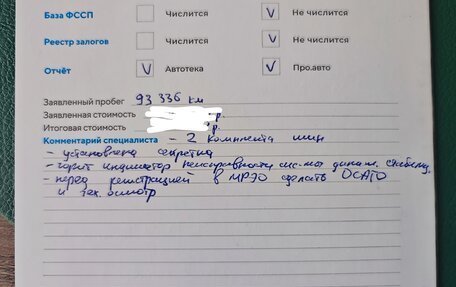 База ФССП Числится V Не числится
Реестр залогов Числится V Не числится
Отчёт V Автотека V Про.авто
Заявленный пробег 93 336 км
Заявленная стоимость р.
Итоговая стоимость р.
Комментарий специалиста - 2 комплекта шин
- установлена секретка
- горит индикатор неисправности сис-мы динам. стабилиз.
- перед регистрацией в МРЭО сделать ОСАГО
и тех. осмотр